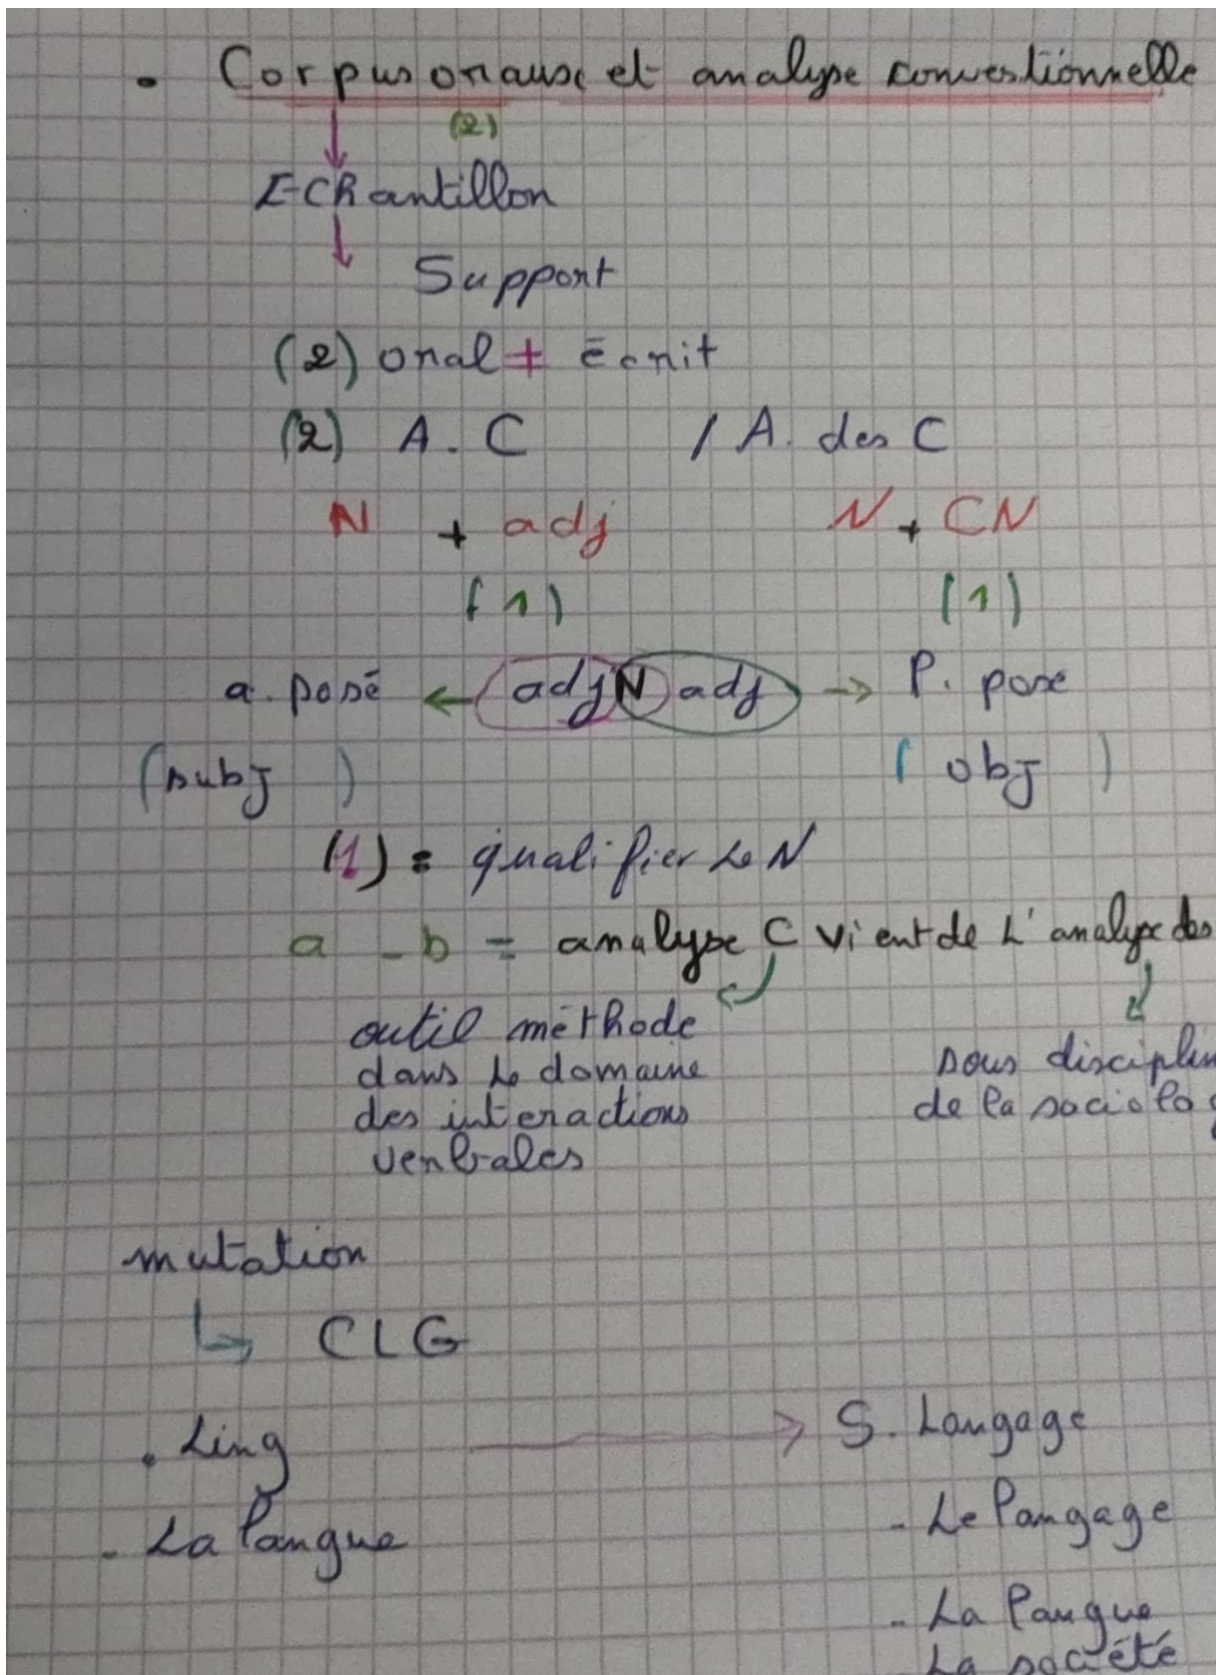 • Corpus oraux et analyse converstionnelle
(2)
↓
Echantillon
↓
Support
(2) oral ≠ écrit
(2) A. C / A. des C
N + adj N + CN
(1) (1)
a. posé ← adj N adj → P. pose
(subj ) ( obj )
(1) = qualifier Le N
a - b = analyse C vient de L'analyse des
outil méthode
dans Le domaine
des interactions
verbales
sous disciplin
de la sociolog
mutation
↳ CLG
. Ling → S. Langage
- La langue - Le langage
- La langue
La société